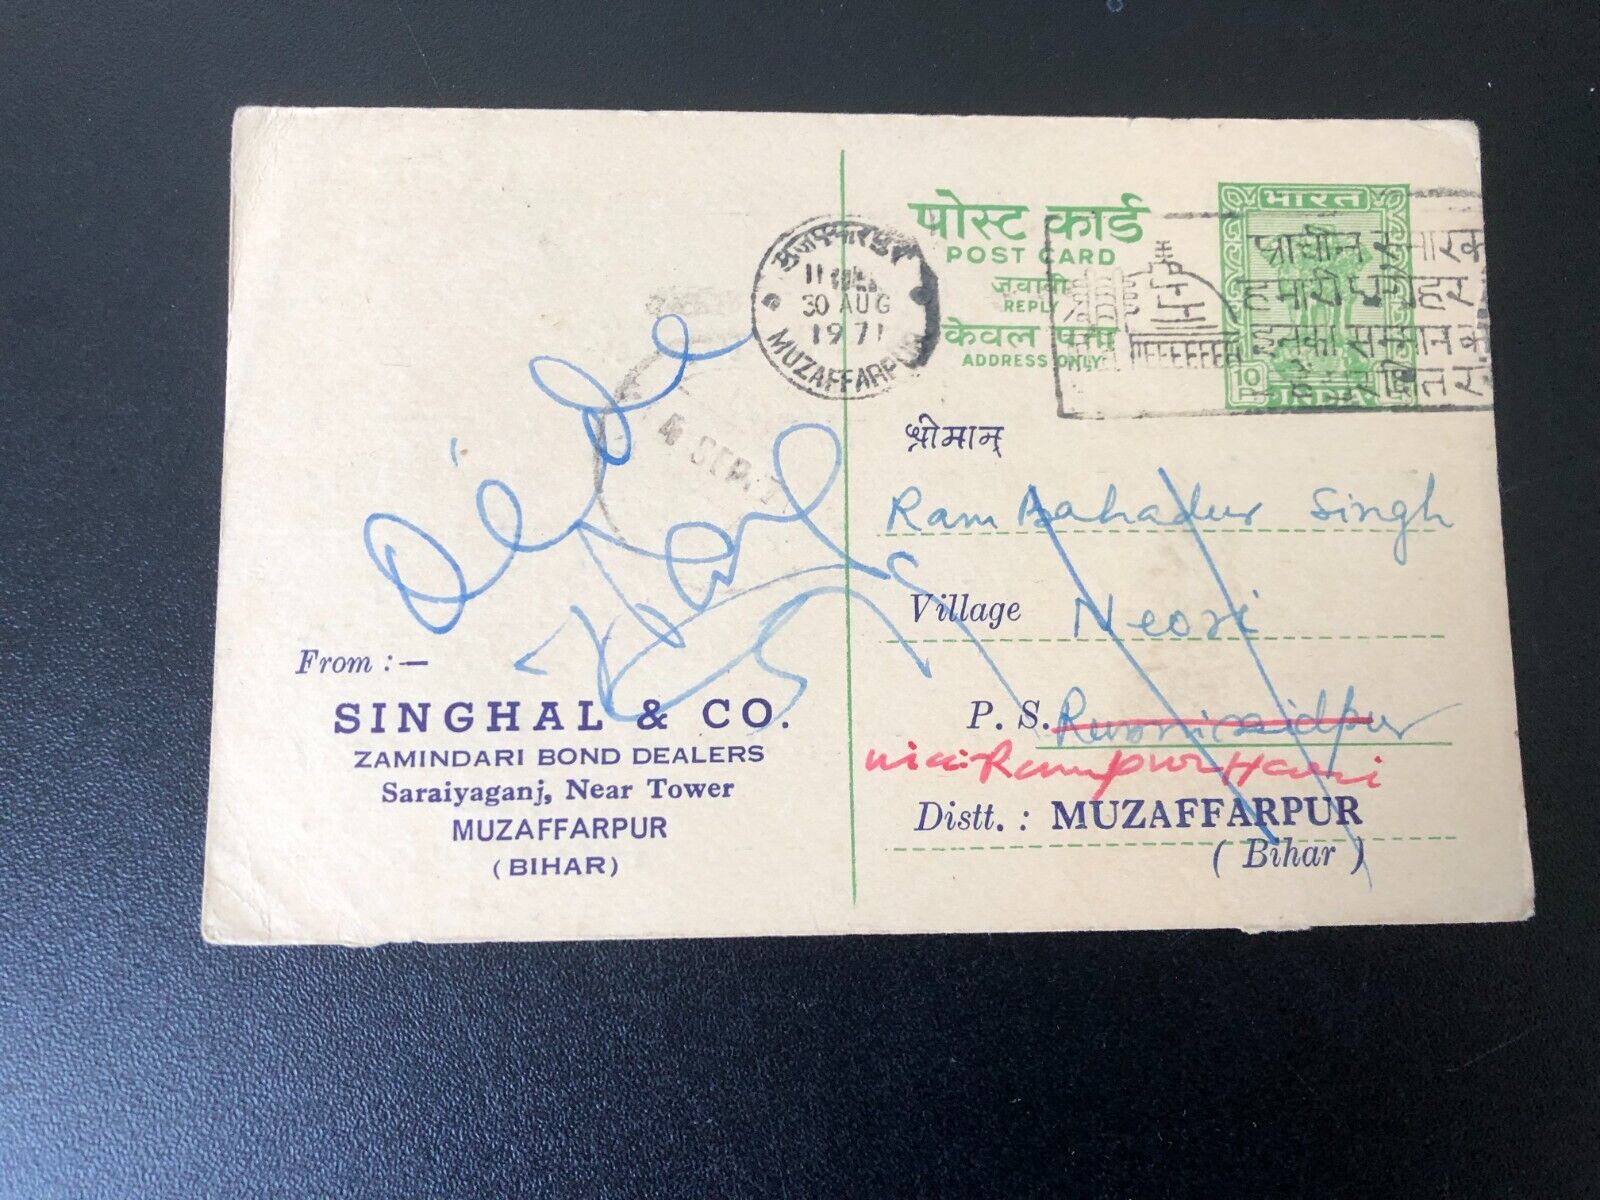 पोस्ट कार्ड
POST CARD
जवाबी
REPLY
केवल पता
ADDRESS ONLY
भारत
10
INDIA
प्राचीन स्मारक
हमारी
इनका सम्मान
मुजफ्फरपुर
30 AUG
1971
MUZAFFARPUR
4 SEP. 7
श्रीमान्
Ram Bahadur Singh
Village Neori
P. S. Runnisaidpur
Rampur Hari
Distt. : MUZAFFARPUR
( Bihar )
From :—
SINGHAL & CO.
ZAMINDARI BOND DEALERS
Saraiyaganj, Near Tower
MUZAFFARPUR
(BIHAR)